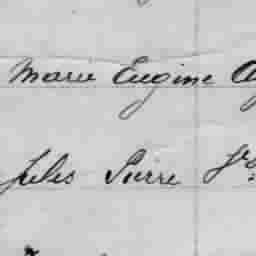 Marie Eugine
Jules Pierre